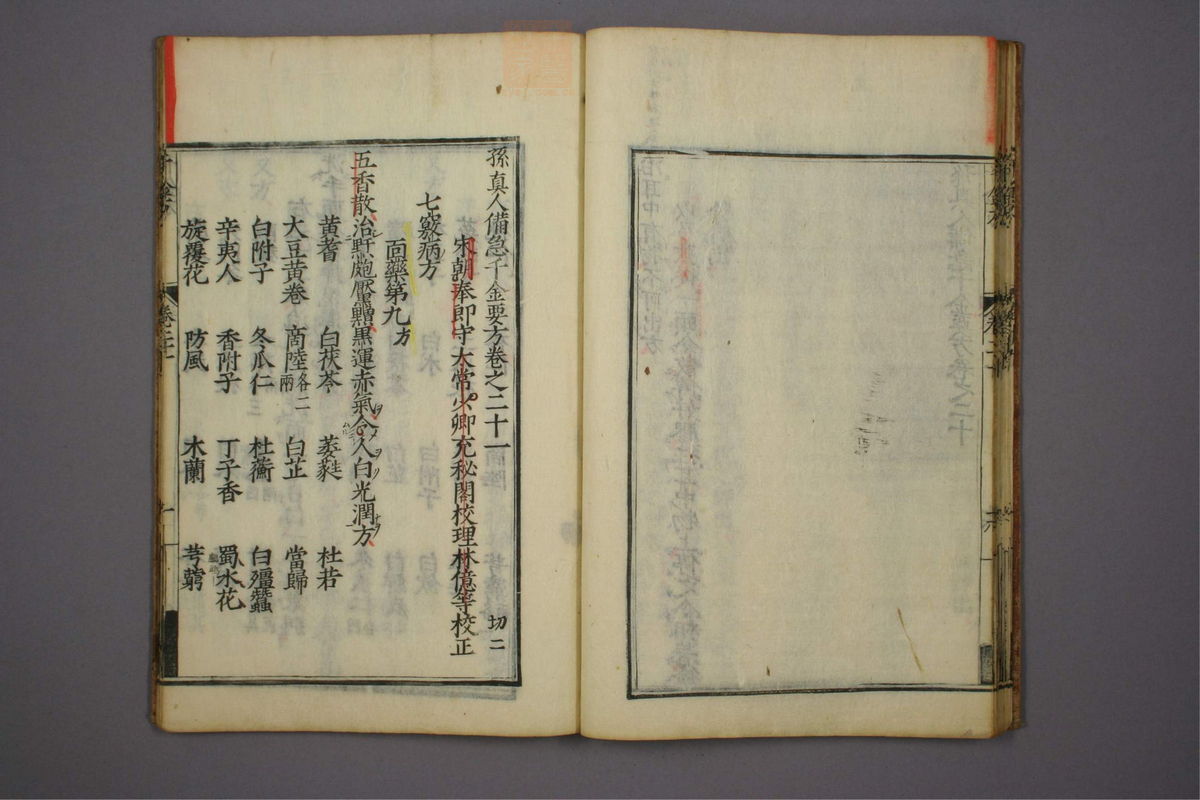 孫真人備急千金要方卷之二十一 切二
宋朝奉郎守太常少卿充秘閣校理林億等校正
七竅病方
面藥第九方
五香散治䵟皰黶䵳黑運赤氣令人白光潤方
黄耆 白茯苓 萎蕤 杜若
大豆黄卷 商陸各二兩 白芷 當歸
白附子 冬瓜仁 杜蘅 白殭蠶
辛夷人 香附子 丁子香 蜀水花
旋覆花 防風 木蘭 芎藭